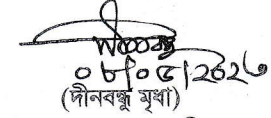 ০৮/০৫/২০২৩
(দীনবন্ধু মৃধা)